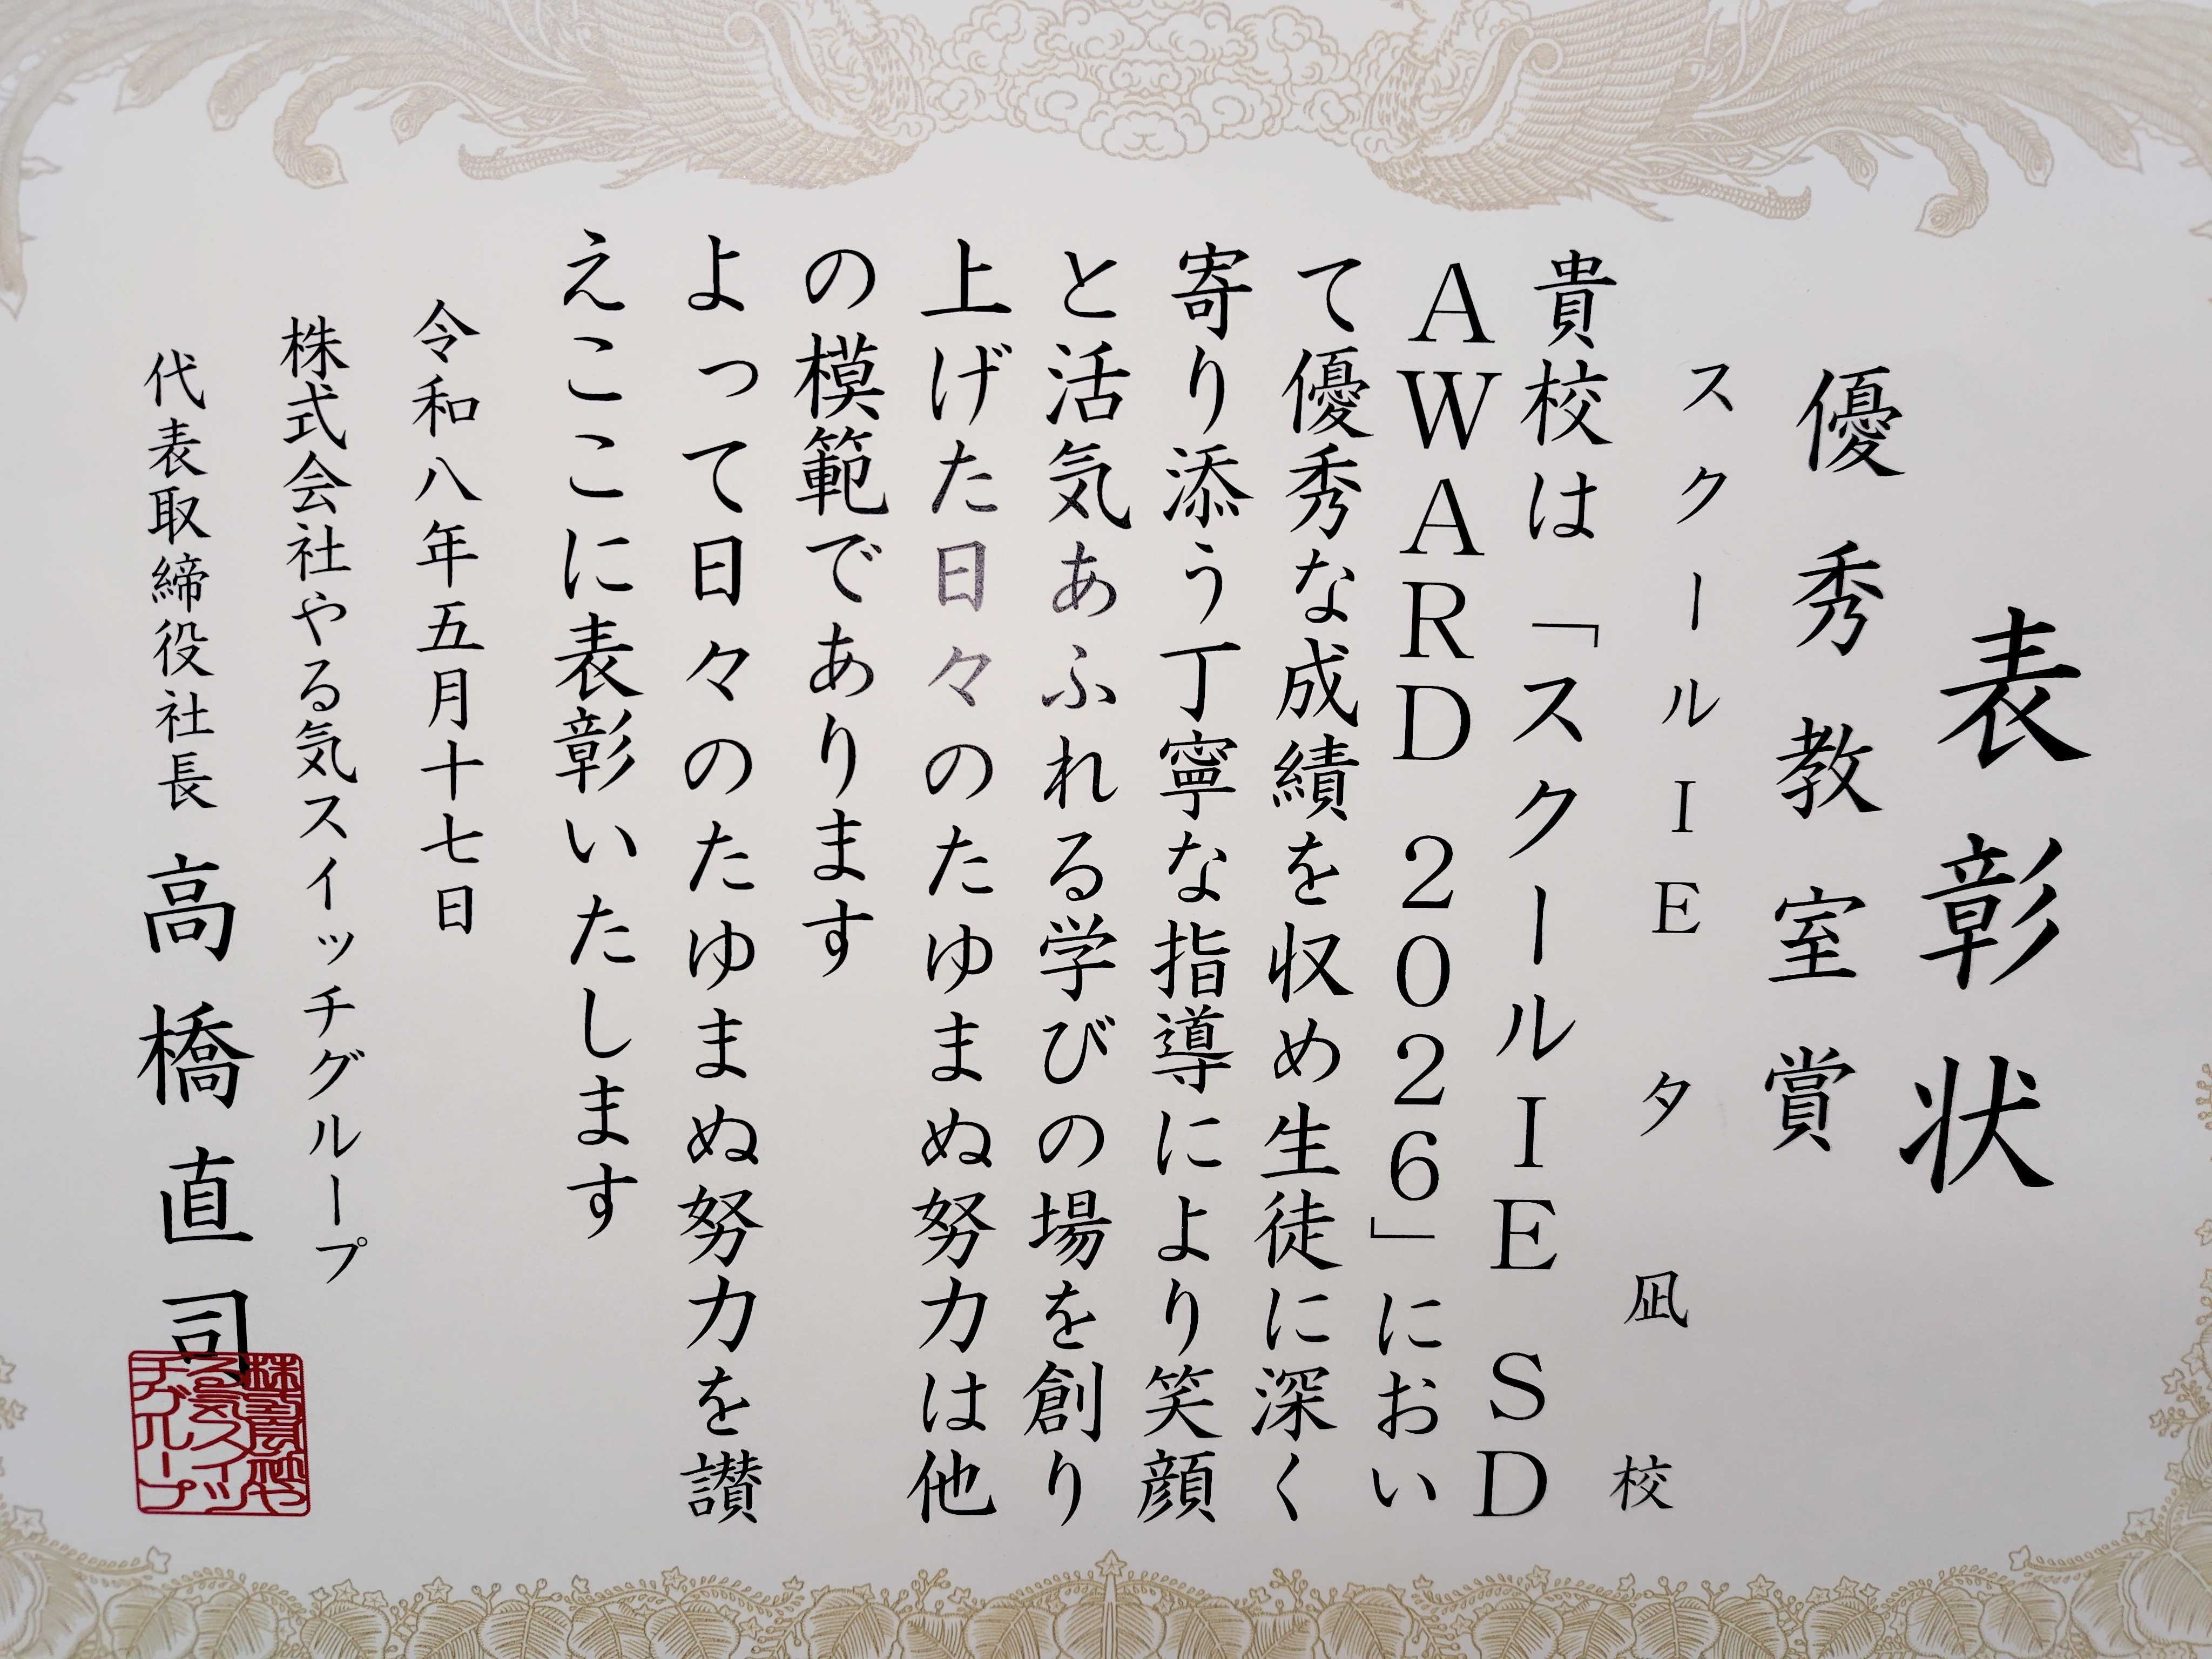 表彰状
優秀教室賞
スクールIE 夕凪校
貴校は「スクールIE SD
AWARD 2026」におい
て優秀な成績を収め生徒に深く
寄り添う丁寧な指導により笑顔
と活気あふれる学びの場を創り
上げた日々のたゆまぬ努力は他
の模範であります
よって日々のたゆまぬ努力を讃
えここに表彰いたします
令和八年五月十七日
株式会社やる気スイッチグループ
代表取締役社長 高橋直司
株式会社や
る気スイッ
チグループ